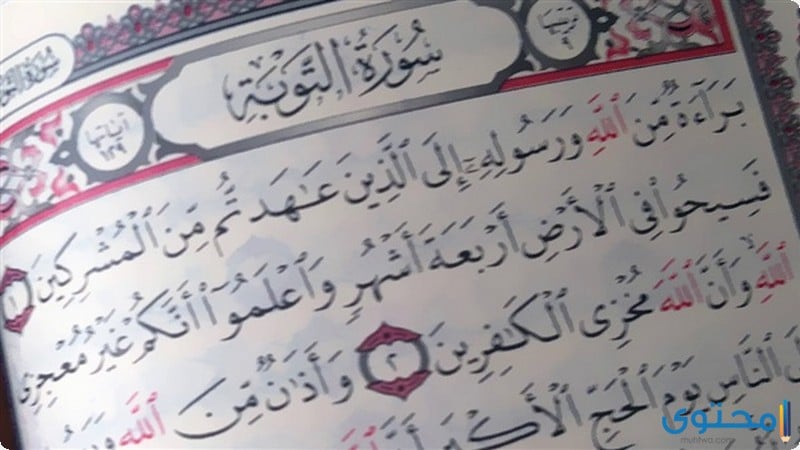 سُورَةُ التَّوْبَةِ
ترتيبها ٩
آياتها ١٢٩
بَرَآءَةٌ مِّنَ ٱللَّهِ وَرَسُولِهِۦٓ إِلَى ٱلَّذِينَ عَـٰهَدتُّم مِّنَ ٱلْمُشْرِكِينَ ١
فَسِيحُوا۟ فِى ٱلْأَرْضِ أَرْبَعَةَ أَشْهُرٍ وَٱعْلَمُوٓا۟ أَنَّكُمْ غَيْرُ مُعْجِزِى
ٱللَّهِ ۙ وَأَنَّ ٱللَّهَ مُخْزِى ٱلْكَـٰفِرِينَ ٢ وَأَذَٰنٌ مِّنَ ٱللَّهِ
ٱلنَّاسِ يَوْمَ ٱلْحَجِّ ٱلْأَكْبَرِ أَنَّ
محتوى
muhtwa.com